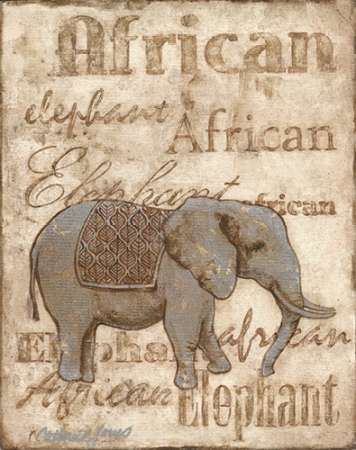 African
elephant
African
Elephant
african
Elepha
african
African
Elephant